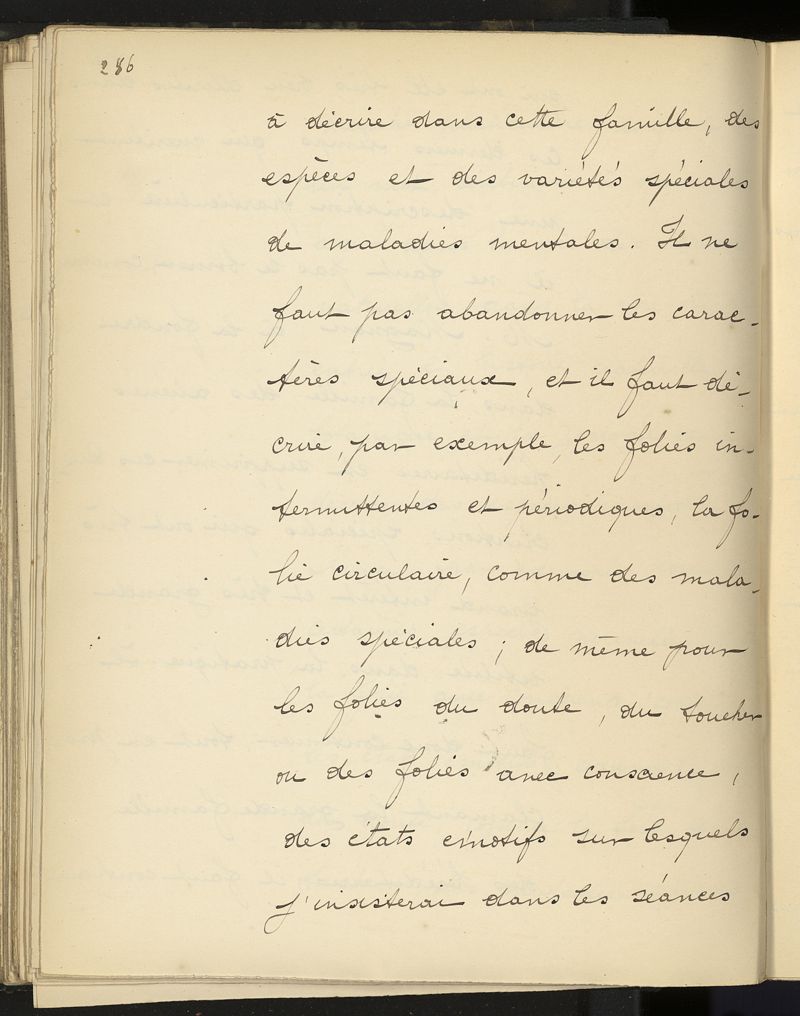 286
à décrire dans cette famille, des
espèces et des variétés spéciales
de maladies mentales. Il ne
faut pas abandonner les carac-
tères spéciaux, et il faut dé-
crire, par exemple, les folies in-
termittentes et périodiques, la fo-
lie circulaire, comme des mala-
dies spéciales ; de même pour
les folies du doute, du toucher
ou des folies avec conscience,
des états émotifs sur lesquels
j'insisterai dans les séances